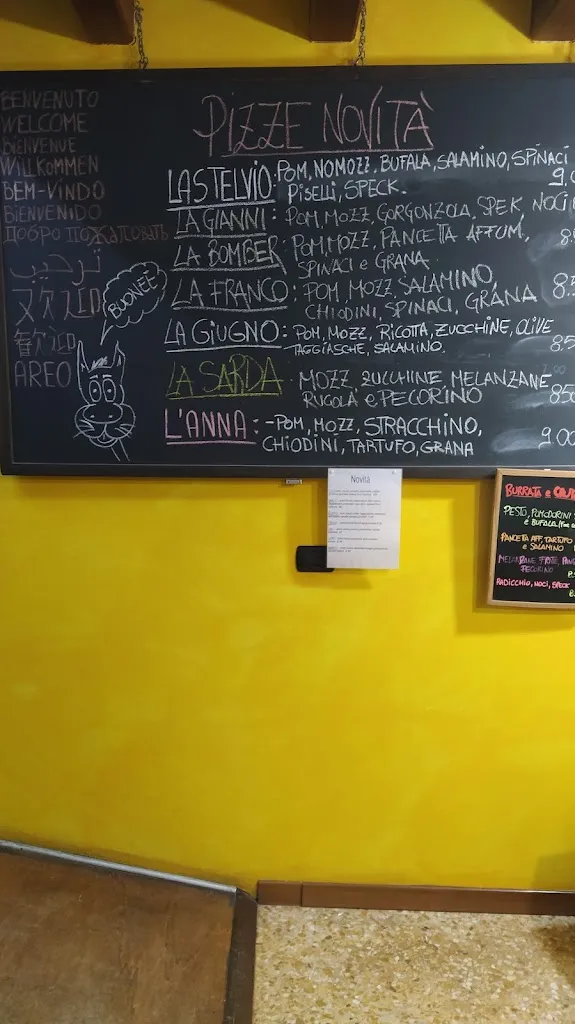 BENVENUTO
WELCOME
BIENVENUE
WILLKOMMEN
BEM-VINDO
BIENVENIDO
ДОБРО ПОЖАЛОВАТЬ
ترحيب
欢迎
歓迎
AREO
BUONEÈ
PIZZE NOVITÀ
LA STELVIO: POM, NOMOZZ, BUFALA, SALAMINO, SPINACI
PISELLI, SPECK.
LA GIANNI: POM, MOZZ, GORGONZOLA, SPEK, NOCI
LA BOMBER: POM, MOZZ, PANCETTA AFFUM,
SPINACI e GRANA
LA FRANCO: POM, MOZZ, SALAMINO,
CHIODINI, SPINACI, GRANA 8.5
LA GIUGNO: POM, MOZZ, RICOTTA, ZUCCHINE, OLIVE
TAGGIASCHE, SALAMINO. 8.5
LA SARDA: MOZZ, ZUCCHINE MELANZANE
RUGOLA e PECORINO 850
L'ANNA: -POM, MOZZ, STRACCHINO,
CHIODINI, TARTUFO, GRANA 9.00
Novità
BURRATA e
PESTO, POMODORINI
e BUFALA
PANCETTA AFF, TARTUFO
e SALAMINO
MELANZANE FRITTE,
PECORINO
RADICCHIO, NOCI, SPECK